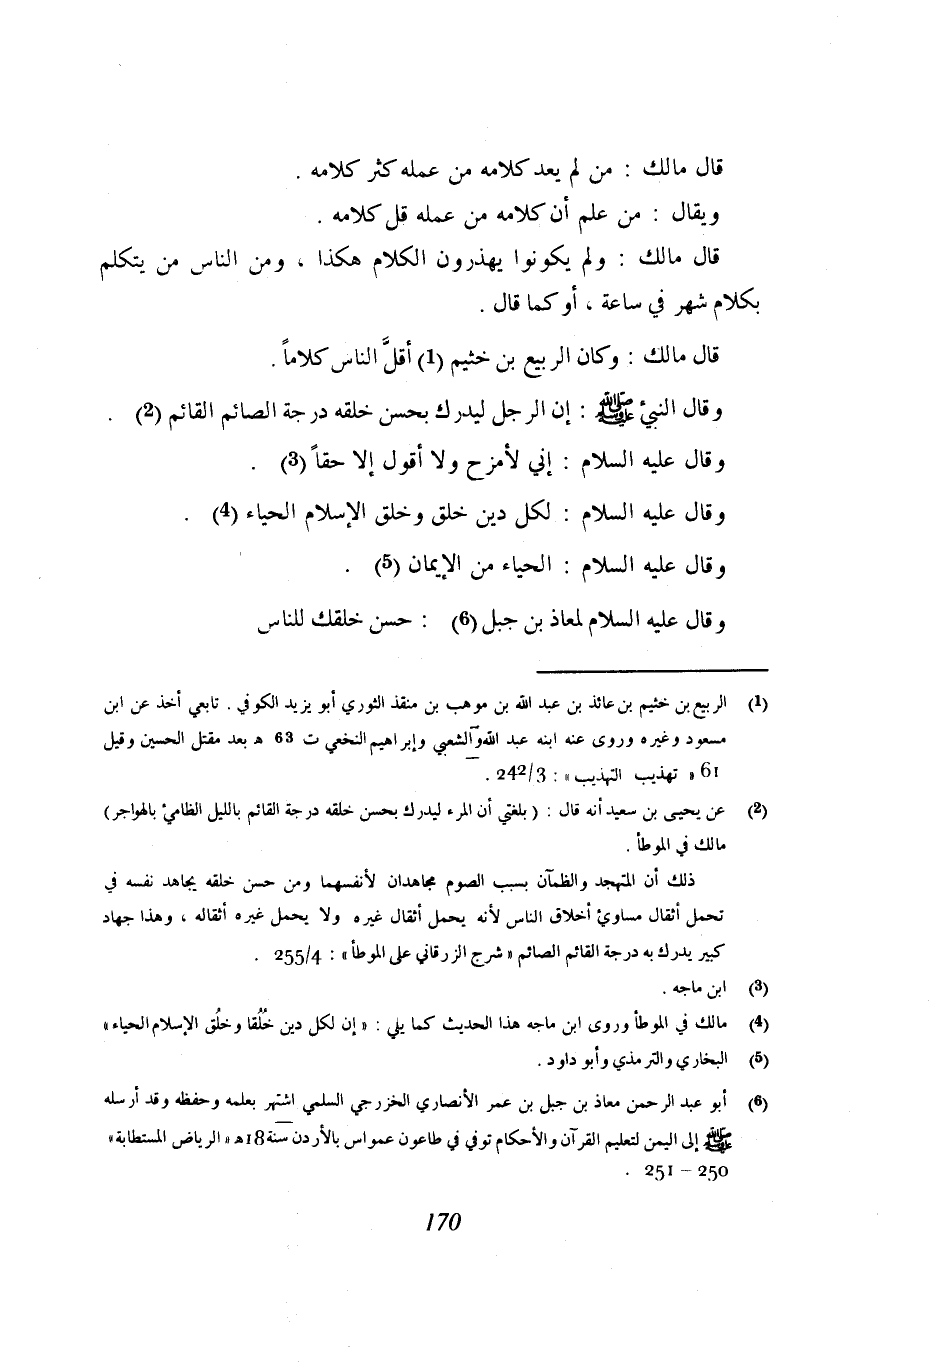 قال مالك : من لم يعد كلامه من عمله كثر كلامه .
ويقال : من علم أن كلامه من عمله قل كلامه .
قال مالك : ولم يكونوا يهذرون الكلام هكذا ، ومن الناس من يتكلم
بكلام شهر في ساعة ، أو كما قال .
قال مالك : وكان الربيع بن خثيم (1) أقلَّ الناس كلاماً .
وقال النبيُ ﷺ : إن الرجل ليدرك بحسن خلقه درجة الصائم القائم (2) .
وقال عليه السلام : إني لأمزح ولا أقول إلا حقاً (3) .
وقال عليه السلام : لكل دين خلق وخلق الإسلام الحياء (4) .
وقال عليه السلام : الحياء من الإيمان (5) .
وقال عليه السلام لمعاذ بن جبل (6) : حسن خلقك للناس
(1) الربيع بن خثيم بن عائذ بن عبد الله بن موهب بن منقذ الثوري أبو يزيد الكوفي . تابعي أخذ عن ابن
مسعود وغيره وروى عنه ابنه عبد الله والشعبي وإبراهيم النخعي ت 63 ه بعد مقتل الحسين وقيل
61 « تهذيب التهذيب » : 242/3 .
(2) عن يحيى بن سعيد أنه قال : ( بلغني أن المرء ليدرك بحسن خلقه درجة القائم بالليل الظامئ بالهواجر)
مالك في الموطأ .
ذلك أن المتهجد والظمآن بسبب الصوم مجاهدان لأنفسهما ومن حسن خلقه يجاهد نفسه في
تحمل أثقال مساوئ أخلاق الناس لأنه يحمل أثقال غيره ولا يحمل غيره أثقاله ، وهذا جهاد
كبير يدرك به درجة القائم الصائم « شرح الزرقاني على الموطأ » : 255/4 .
(3) ابن ماجه .
(4) مالك في الموطأ وروى ابن ماجه هذا الحديث كما يلي : « إن لكل دين خُلُقا وخلُق الإسلام الحياء »
(5) البخاري والترمذي وأبو داود .
(6) أبو عبد الرحمن معاذ بن جبل بن عمر الأنصاري الخزرجي السلمي اشتهر بعلمه وحفظه وقد أرسله
ﷺ إلى اليمن لتعليم القرآن والأحكام توفي في طاعون عمواس بالأردن سنة 18ه « الرياض المستطابة »
250 – 251 .
170